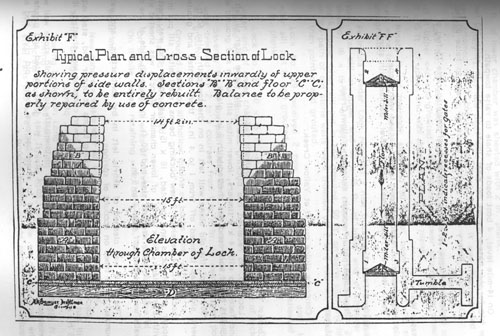 Exhibit "F".
Typical Plan and Cross Section of Lock
Showing pressure displacements inwardly of upper
portions of side walls. Sections "B" "B" and floor "C" "C",
as shown, to be entirely rebuilt. Balance to be prop-
erly repaired by use of concrete.
14 ft 2 in.
B
B
15 ft.
Elevation
through Chamber of Lock.
15 ft
"C"
"C"
D
Exhibit "FF"
Miter Sill
PLAN
recesses for Gates
Miter Sill
Tumble